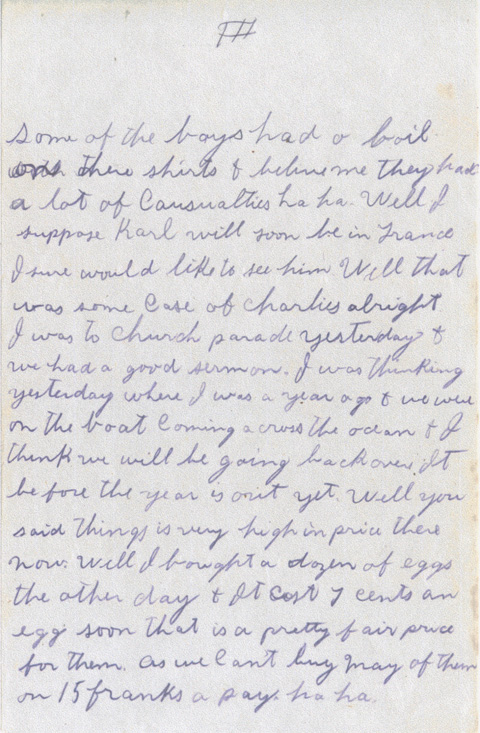 III
some of the boys had a boil
with there shirts & believe me they had
a lot of Causualties ha ha. Well I
suppose Karl will soon be in France
I sure would like to see him Well that
was some Case of Charlies alright.
I was to Church parade yesterday &
we had a good sermon. I was thinking
yesterday where I was a year ago & we were
on the boat Coming across the ocean & I
think we will be going back over It
before the year is out yet. Well you
said things is very high in price there
now. Well I bought a dozen of eggs
the other day & It Cost 7 cents an
egg soon that is a pretty fair price
for them. as we Cant buy many of them
on 15 franks a pay. ha ha.